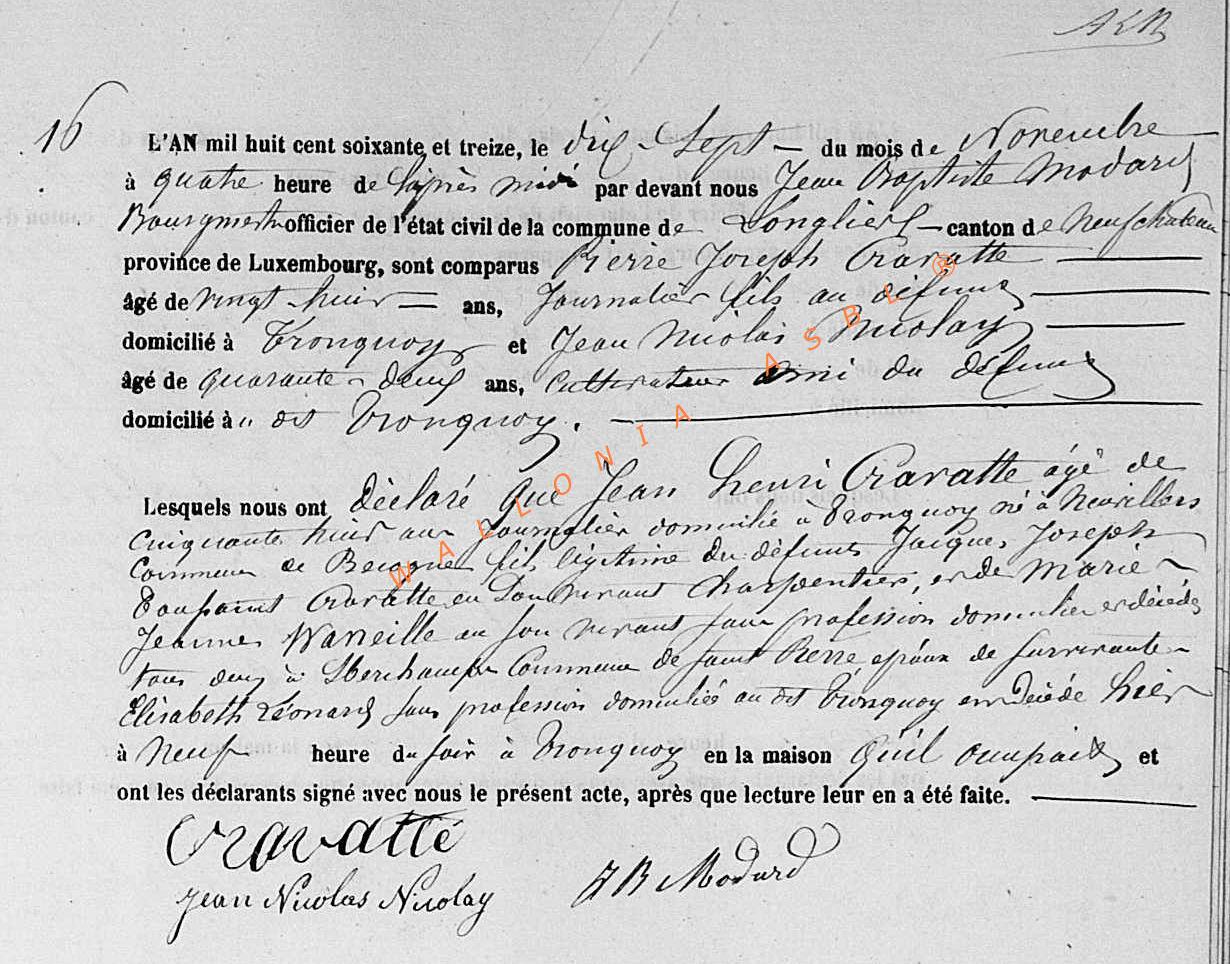 16
L'AN mil huit cent soixante et treize, le dix-Sept — du mois de Novembre
à quatre heure de l'après midi par devant nous Jean Baptiste Modard
Bourgmestre officier de l'état civil de la commune de Longlier — canton de Neufchateau
province de Luxembourg, sont comparus Pierre Joseph Cravatte
âgé de vingt huit ans, Journalier fils au défunt
domicilié à Tronquoy et Jean Nicolas Nicolay
âgé de quarante-deux ans, cultivateur ami du défunt
domicilié à dit Tronquoy.
Lesquels nous ont déclaré que Jean henri Cravatte âgé de
cinquante huit ans Journalier domicilié à Tronquoy né à Neuvillers
Commune de Recogne fils légitime du défunt Jacques Joseph
Toussaint Cravatte en Son vivant Charpentier, et de Marie
Jeanne en son vivant sans profession domiciliés et décédés
tous deux à Commune de Saint Pierre époux de survivante
Elisabeth Léonard sans profession domiciliée au dit Tronquoy est Décédé hier
à Neuf heure du soir à Tronquoy en la maison qu'il occupait et
ont les déclarants signé avec nous le présent acte, après que lecture leur en a été faite.
Cravatte
Jean Nicolas Nicolay
JB Modard
WALLONIA ASBL ®